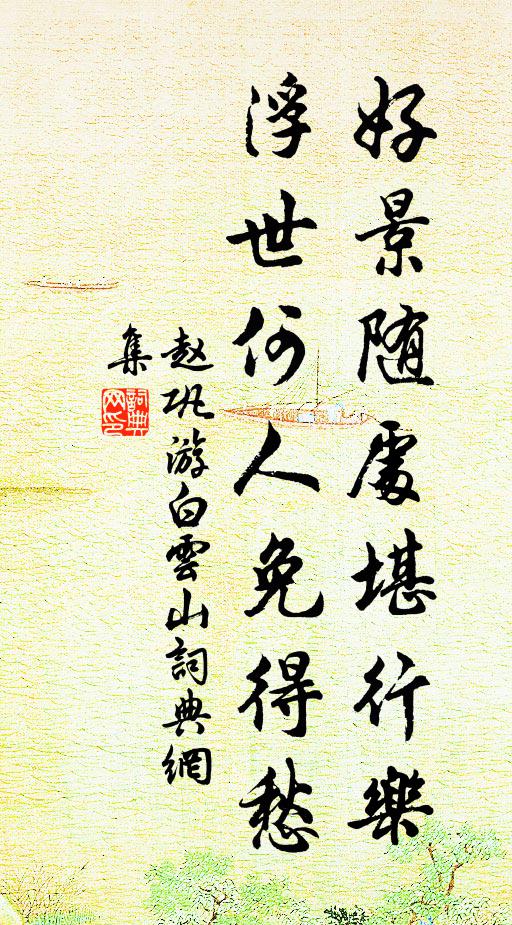 好景随處堪行樂
浮世何人免得愁
赵巩游白雲山詞典網
集
詞典
网印